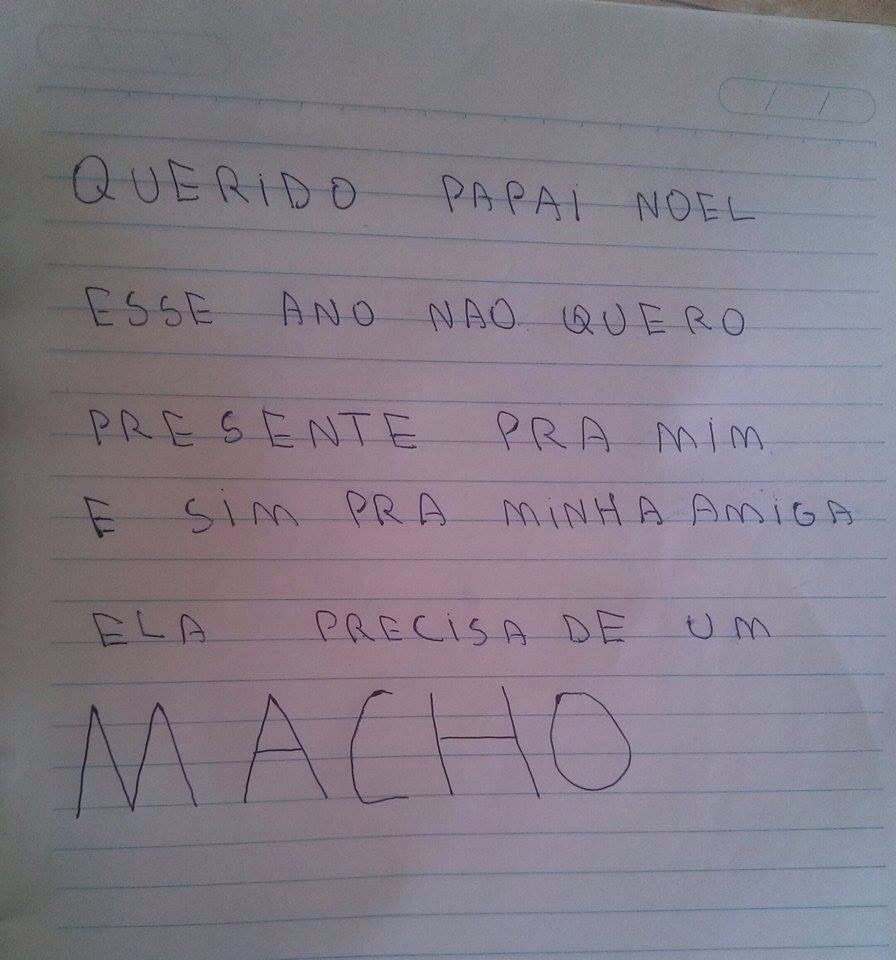 QUERIDO PAPAI NOEL
ESSE ANO NAO QUERO
PRESENTE PRA MIM
E SIM PRA MINHA AMIGA
ELA PRECISA DE UM
MACHO